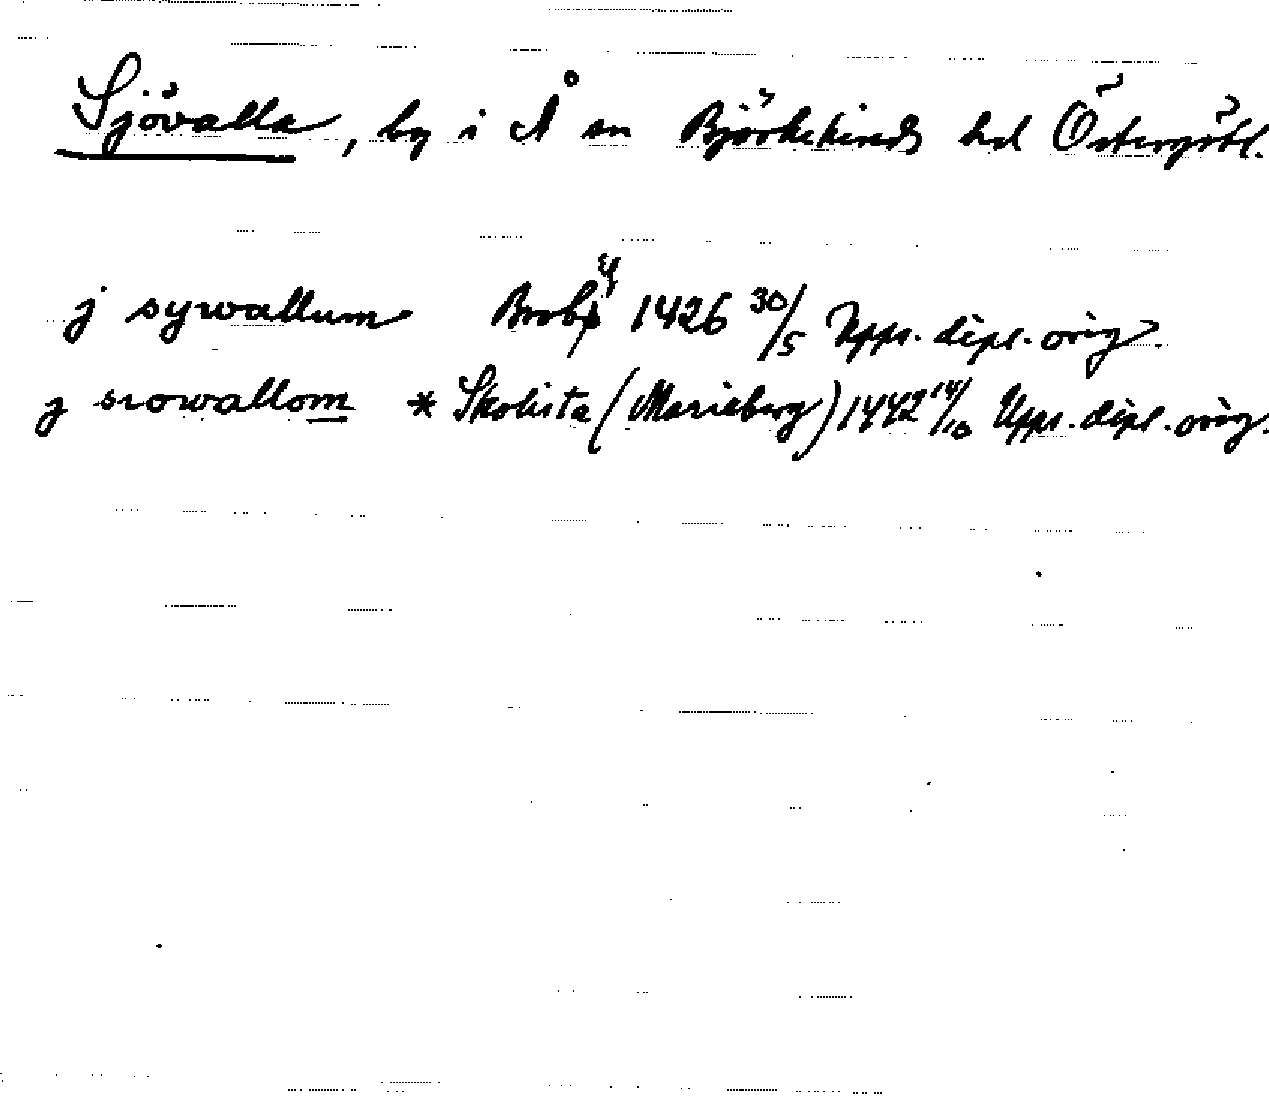 Sjövalla, by i Å sn Björkekinds hd Östergötl.
j sywallum Broby 1426 30/5 Upps. dipl. orig.
j siowallom * Skolista (Marieberg) 1442 14/10 Upps. dipl. orig.